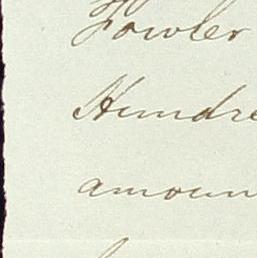 Fowler
Hundre
amoun